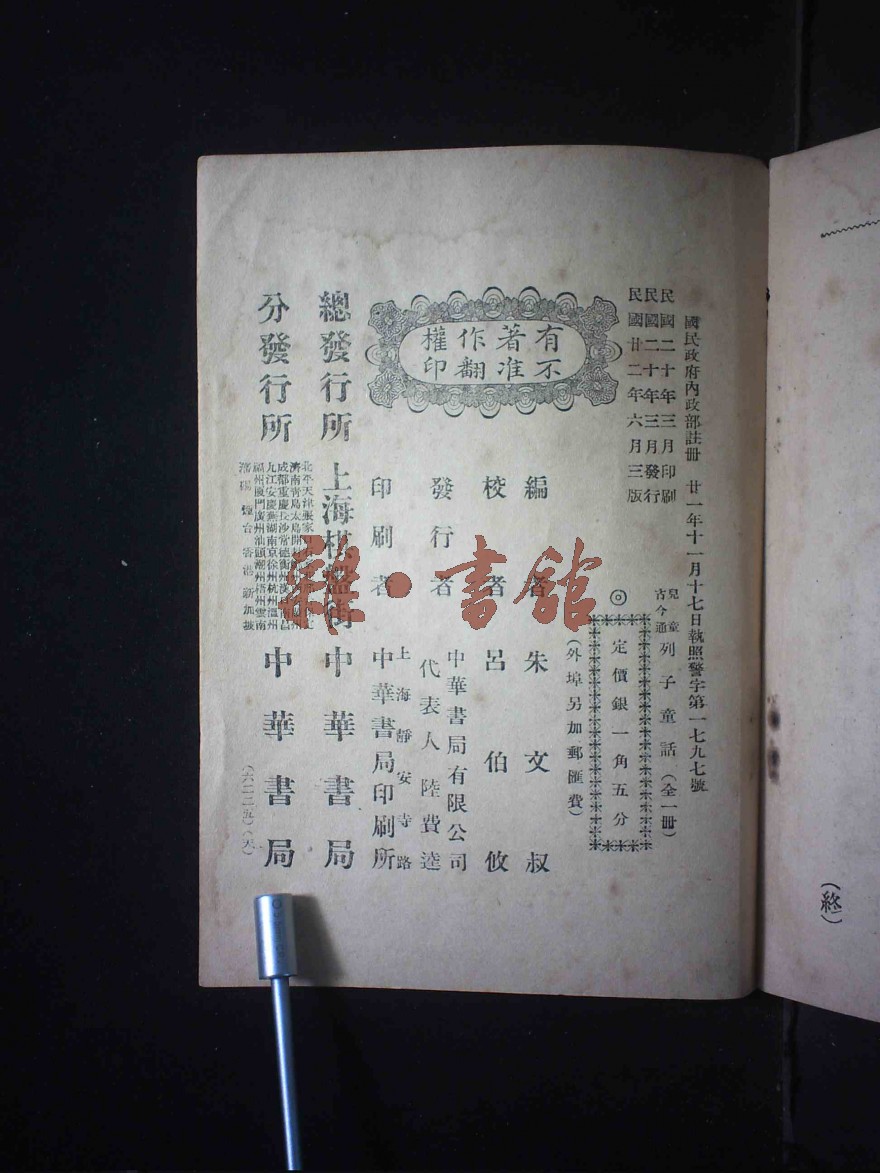 國民政府內政部註冊 廿一年十一月十七日執照警字第一七九七號
民國二十年三月印刷
民國二十年三月發行
民國廿二年六月三版
兒童古今通 列子童話（全一冊）
◎定價銀一角五分
（外埠另加郵匯費）
有不著准作翻權印
編者 朱文叔
校者 呂伯攸
發行者 中華書局有限公司
代表人 陸費逵
印刷者 上海靜安寺路
中華書局印刷所
總發行所 上海棋盤街 中華書局
分發行所
北平天津張家
濟南青島太原開封
成都重慶長沙常德衡州漢口南昌
九江安慶蕪湖南京徐州杭州溫州
福州廈門廣州汕頭潮州梧州雲南
瀋陽 煙台 香港 新加坡
中華書局
雜·書館
（終）